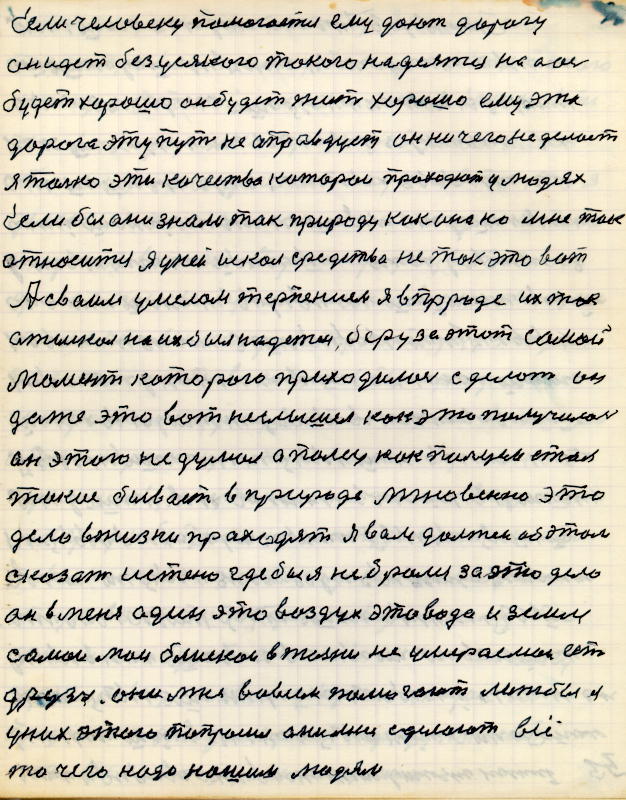 Если человеку помогается ему дают дорогу
он идет без усякого такого надеятся на або
будет хорошо он будет жит хорошо ему эта
дорога эту пут не оправдует он ничего не делает
я толко эти качества которои проходят у людях
Если бы ани знали так природу как она ко мне так
относится я у ней искал средства не так это вот
А сваим умелом терпением я в прроде их так
наих был надется, беру за этот самои
Момент которого приходилос сделат он
даже это вот неслышел как это получилос
ан этого не думал а палец как палцем стал
такое бывает в природе Мгновенно это
дело вжизни праходят Я вам должен об этом
сказат истено где бы я не брали за это дело
ан в меня адин это воздух это вода и земля
самои мои блискои в жизни не умираемои ест
друзя. они мне вовсем помогают лиж бы я
уних этого попросил ани мне сделают всё
то чего надо нашим людям